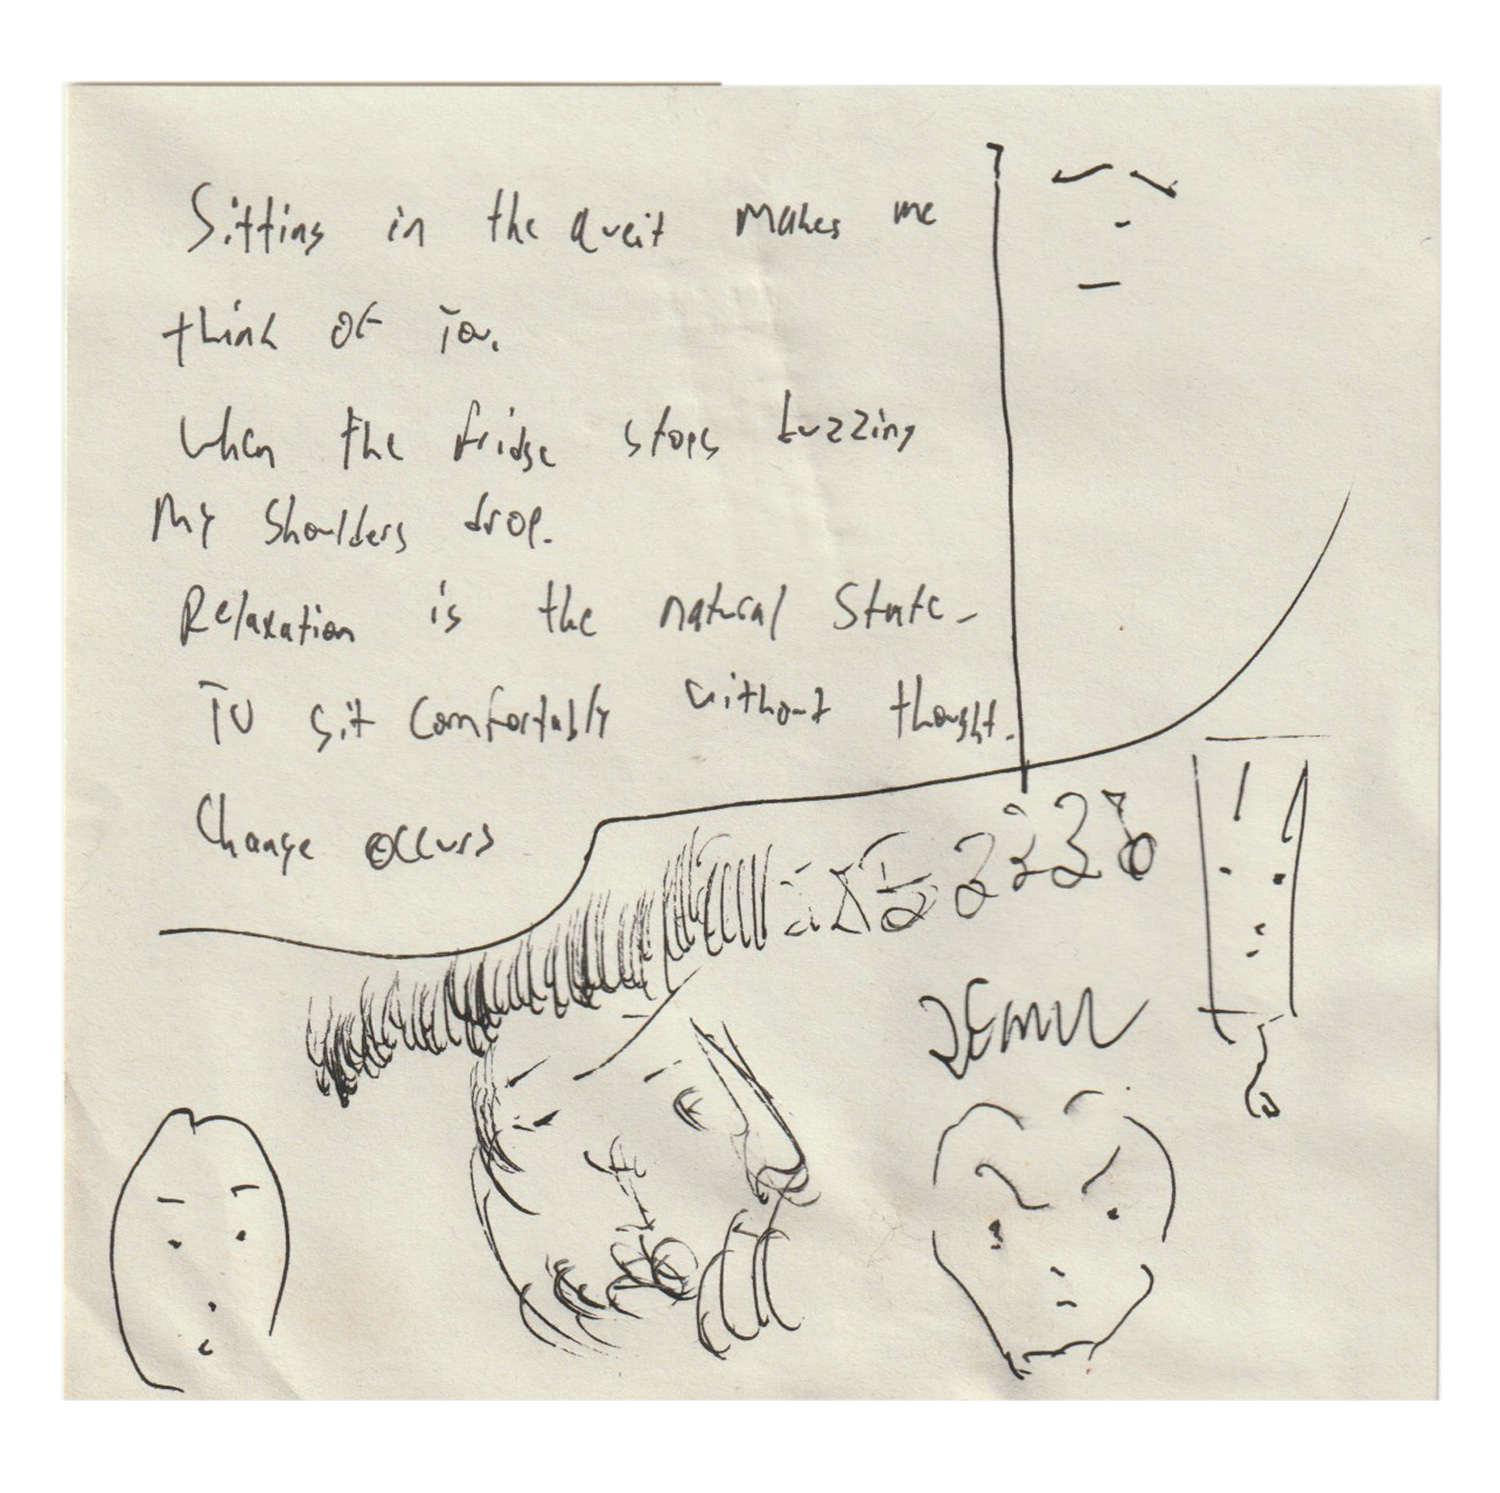 Sitting in the queit makes me
think of
When the fridge stops buzzing
My shoulders drop.
Relaxation is the natural state.
To sit comfortably without thought.
Change occurs